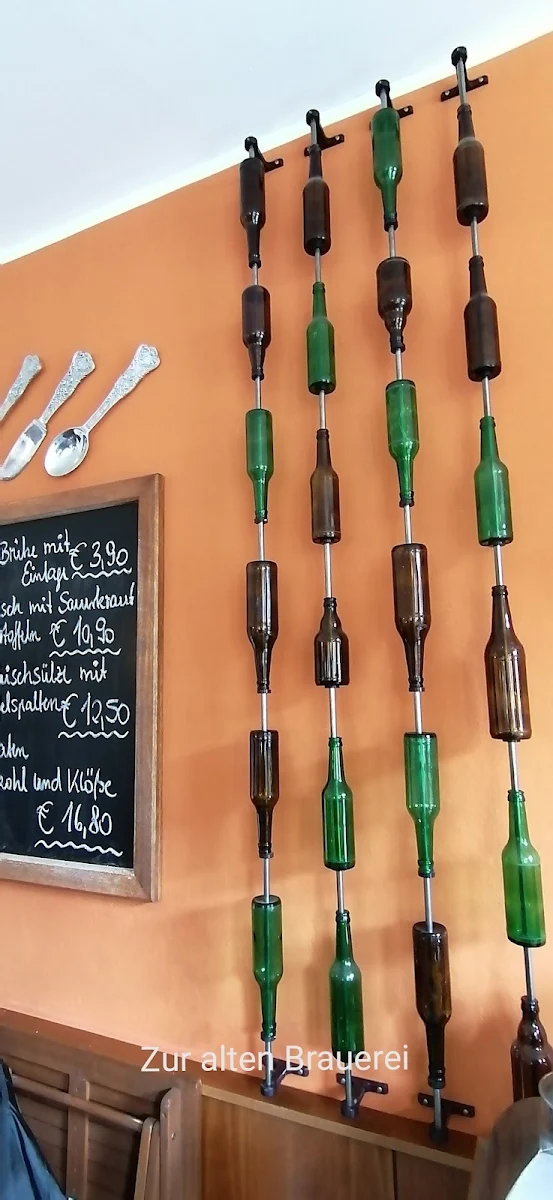 Brühe mit € 3,90
Einlage
sch mit Sauerkraut
toffeln € 10,90
eischsülze mit
elspalten € 12,50
aten
kohl und Klöße
€ 16,80
Zur alten Brauerei